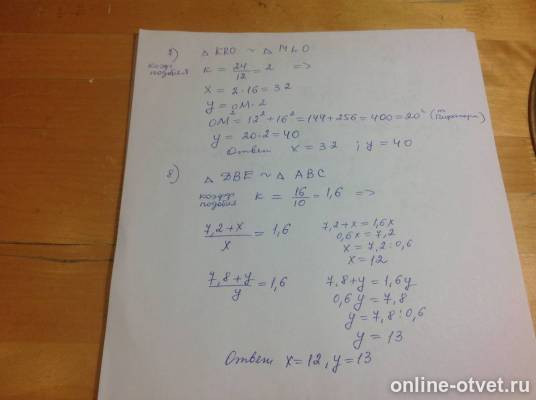 7) △ KRO ~ △ MLO
коэф. подобия K = 24/12 = 2 =>
x = 2·16 = 32
y = OM·2
OM² = 12² + 16² = 144 + 256 = 400 = 20² (т Пифагора)
y = 20·2 = 40
Ответ x = 32 ; y = 40
8) △ DBE ~ △ ABC
коэф. подобия K = 16/10 = 1,6 =>
(7,2+x)/x = 1,6
7,2+x = 1,6x
0,6x = 7,2
x = 7,2:0,6
x = 12
(7,8+y)/y = 1,6
7,8+y = 1,6y
0,6y = 7,8
y = 7,8:0,6
y = 13
Ответ x = 12, y = 13
online-otvet.ru